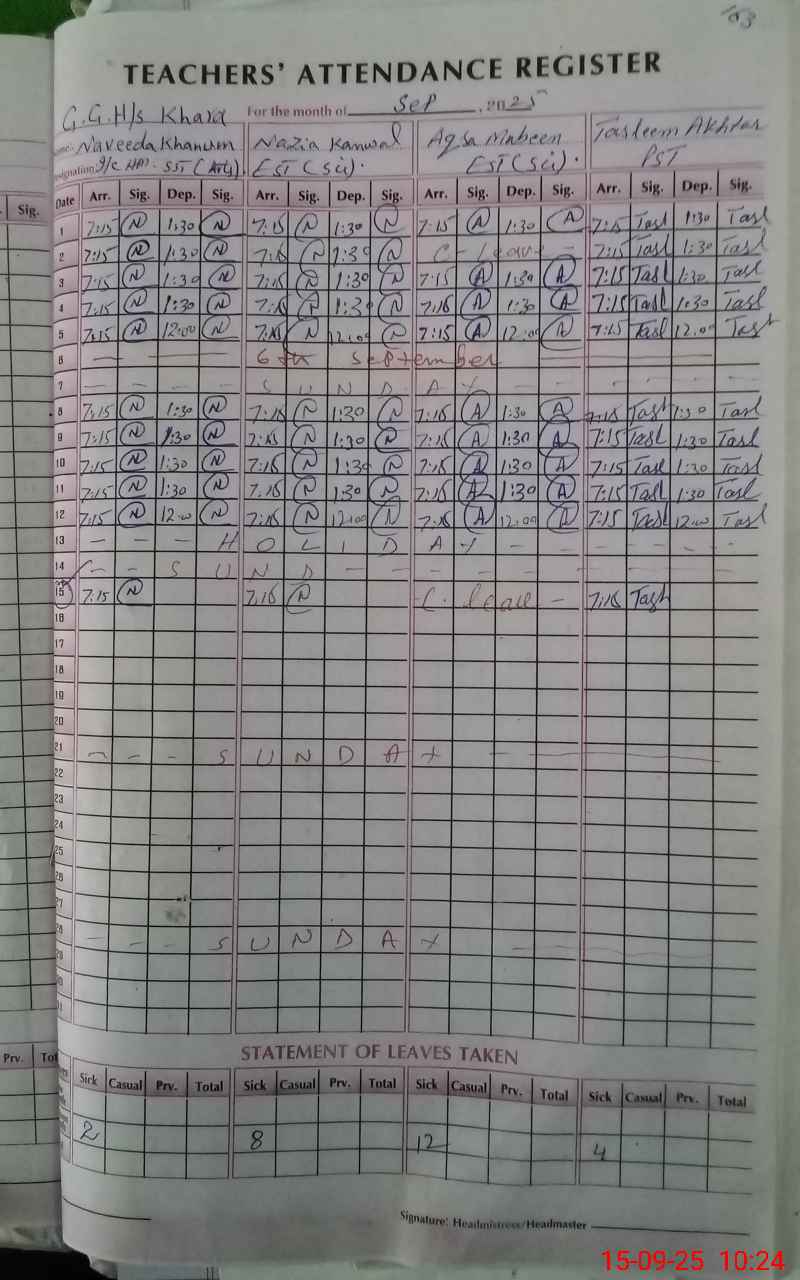 TEACHERS' ATTENDANCE REGISTER
G.G.H/s Khara For the month of Sep , 2025
Name: Naveeda Khanum Nazia Kanwal Aqsa Mabeen Tasleem Akhtar
Designation I/C HM: SST (Arts) EST (Sci) EST (Sci). PST
Sig. Date Arr. Sig. Dep. Sig. Arr. Sig. Dep. Sig. Arr. Sig. Dep. Sig. Arr. Sig. Dep. Sig.
1 7:15 N 1:30 N 7:15 N 1:30 N 7:15 A 1:30 A 7:15 Tasl 1:30 Tasl
2 7:15 N 1:30 N 7:15 N 1:30 N C - leave - 7:15 Tasl 1:30 Tasl
3 7:15 N 1:30 N 7:15 N 1:30 N 7:15 A 1:30 A 7:15 Tasl 1:30 Tasl
4 7:15 N 1:30 N 7:15 N 1:30 N 7:15 A 1:30 A 7:15 Tasl 1:30 Tasl
5 7:15 N 12:00 N 7:15 N 12:00 N 7:15 A 12:00 A 7:15 Tasl 12:00 Tasl
6 — — 6th September — —
7 - - - S U N D A Y - - - - - -
8 7:15 N 1:30 N 7:15 N 1:30 N 7:15 A 1:30 A 7:15 Tasl 1:30 Tasl
9 7:15 N 1:30 N 7:15 N 1:30 N 7:15 A 1:30 A 7:15 Tasl 1:30 Tasl
10 7:15 N 1:30 N 7:15 N 1:30 N 7:15 A 1:30 A 7:15 Tasl 1:30 Tasl
11 7:15 N 1:30 N 7:15 N 1:30 N 7:15 A 1:30 A 7:15 Tasl 1:30 Tasl
12 7:15 N 12:00 N 7:15 N 12:00 N 7:15 A 12:00 A 7:15 Tasl 12:00 Tasl
13 - - - H O L I D A Y - - - - - -
14 - - S U N D - - - - - - -
15 7:15 N 7:15 N C. leave - 7:15 Tasl
16
17
18
19
20
21 - - - S U N D A Y - - -
22
23
24
25
26
27
28 - - - S U N D A Y - -
29
30
31
STATEMENT OF LEAVES TAKEN
Prv. Tot Sick Casual Prv. Total Sick Casual Prv. Total Sick Casual Prv. Total Sick Casual Prv. Total
2 8 12 4
Signature: Headmistress/Headmaster
15-09-25 10:24